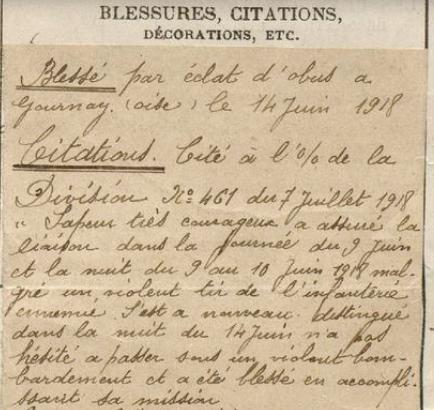 BLESSURES, CITATIONS,
DÉCORATIONS, ETC.
Blessé par éclat d'obus a
Gournay. (oise) le 14 Juin 1918
Citations. Cité à l'o/o de la
Division No 461 du 7 Juillet 1918
" Sapeur très courageux a assuré la
liaison dans la journée du 9 Juin
et la nuit du 9 au 10 Juin 1918 mal-
gré un violent tir de l'infanterie
ennemie. S'est a nouveau distingué
dans la nuit du 14 Juin n'a pas
hésité a passer sous un violent bom-
bardement et a été blessé en accompli-
ssant sa mission